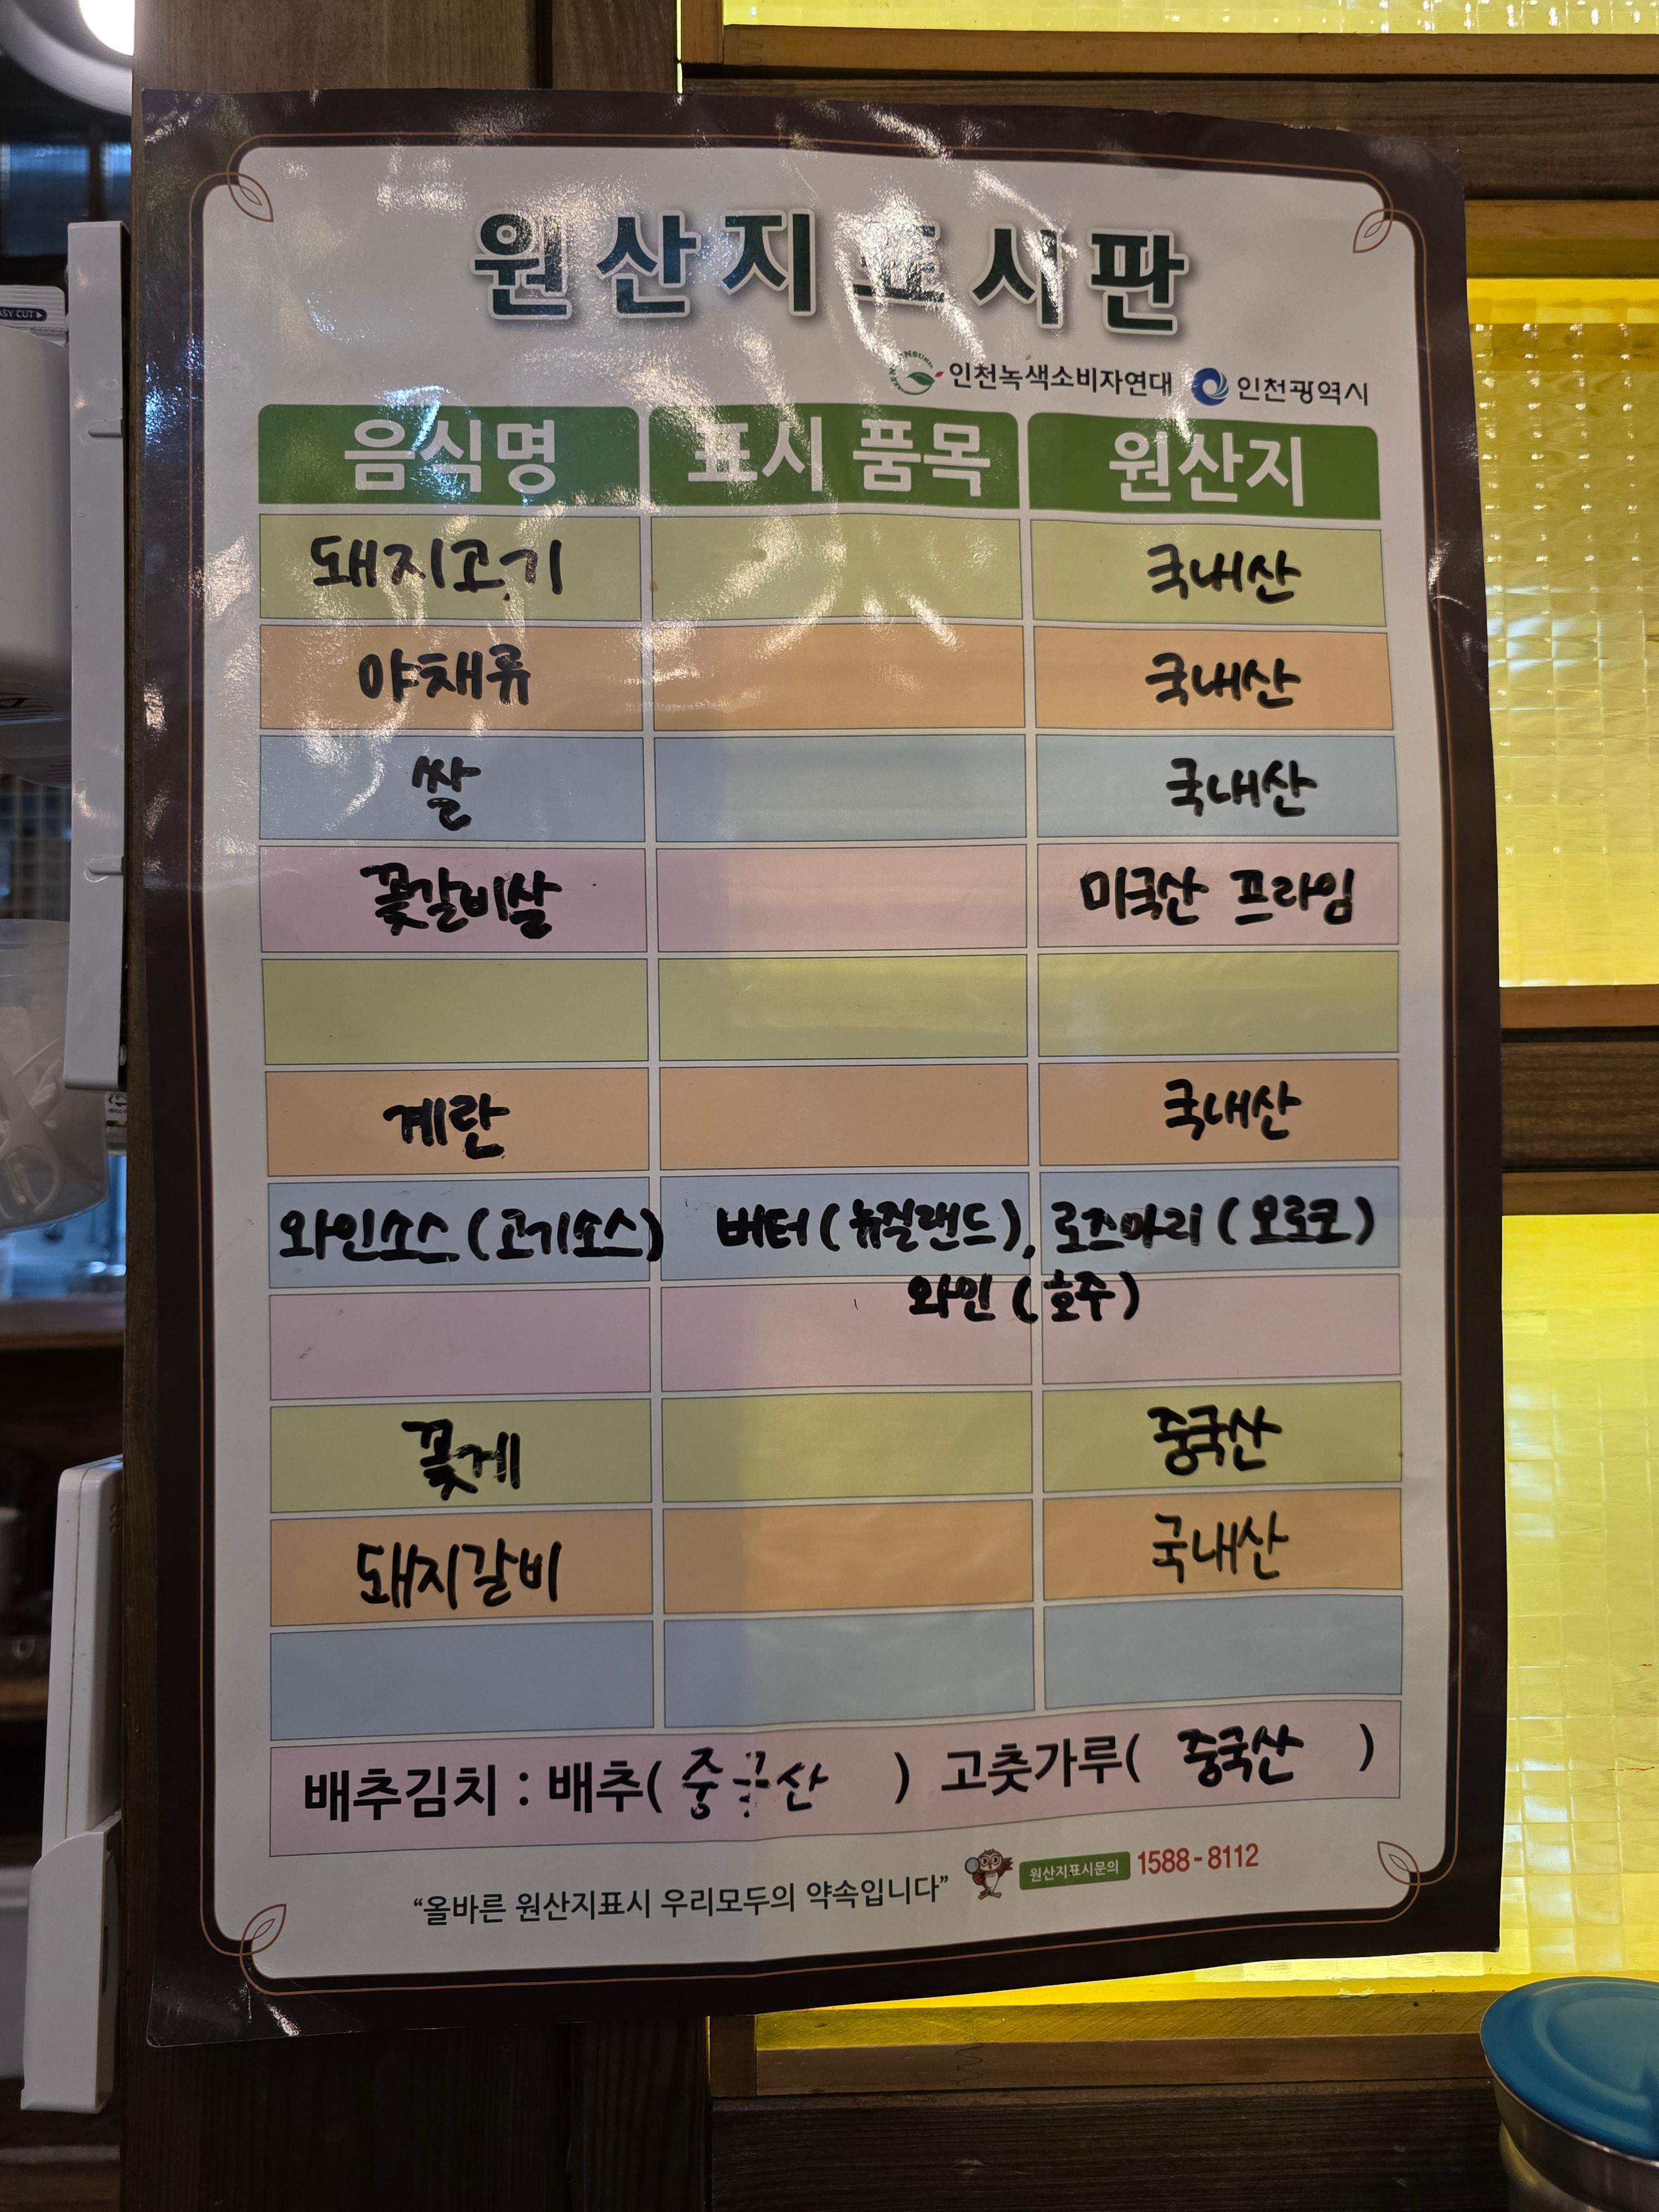 원산지표시판
인천녹색소비자연대 인천광역시
음식명 표시 품목 원산지
돼지고기 국내산
야채류 국내산
쌀 국내산
꽃갈비살 미국산 프라임
계란 국내산
와인소스 (고기소스) 버터 (뉴질랜드), 로즈마리 (모로코)
와인 (호주)
꽃게 중국산
돼지갈비 국내산
배추김치 : 배추( 중국산 ) 고춧가루( 중국산 )
“올바른 원산지표시 우리모두의 약속입니다” 원산지표시문의 1588-8112